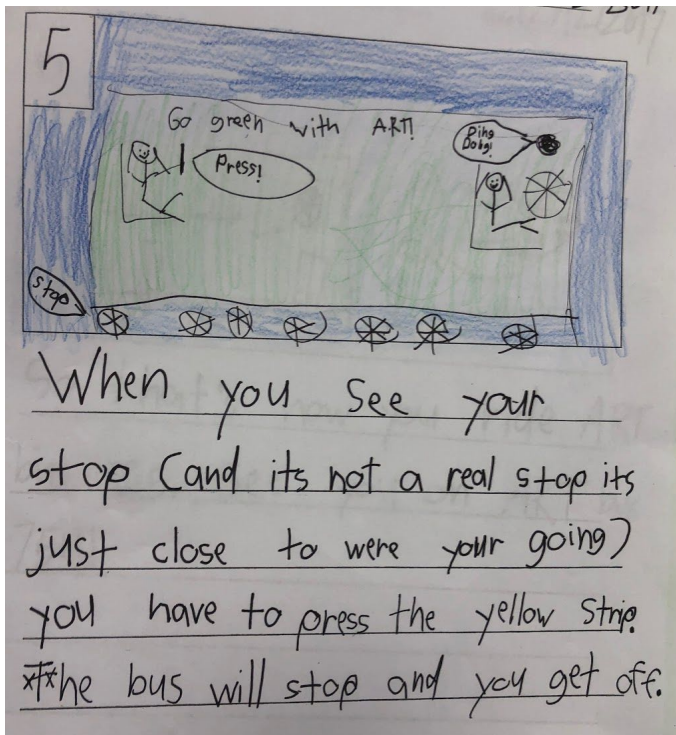 5
Go green with ART!
Press!
Ding
Dong!
stop
When you see your
stop (and its not a real stop its
just close to were your going)
you have to press the yellow strip.
The bus will stop and you get off.